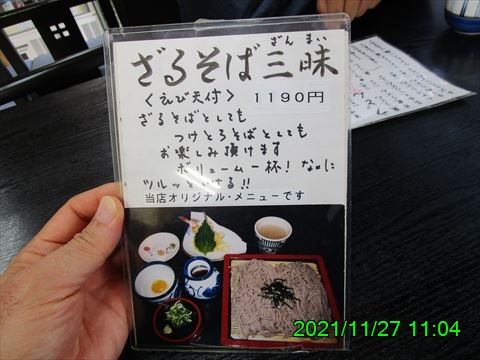 ざんまい
ざるそば三昧
〈えび天付〉 1190円
ざるそばとしても
つけとろそばとしても
お楽しみ頂けます
ボリューム一杯！なのに
ツルッといける!!
当店オリジナル・メニューです
2021/11/27 11:04